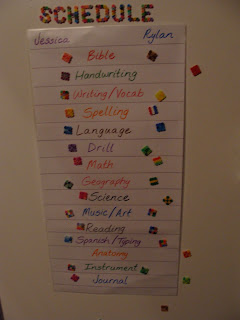 SCHEDULE
Jessica Rylan
Bible
Handwriting
Writing/Vocab
Spelling
Language
Drill
Math
Geography
Science
Music/Art
Reading
Spanish/Typing
Anatomy
Instrument
Journal